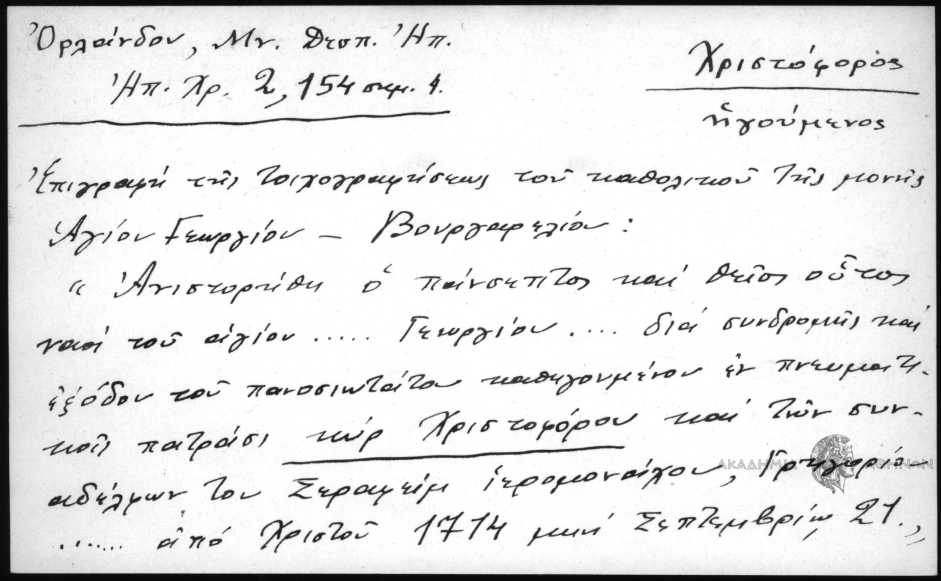 Ὀρλάνδου, Μν. Δεσπ. Ἠπ.
Ἠπ. Χρ. 2, 154 σημ. 1.
Χριστόφορος
ἡγούμενος
Ἐπιγραφή τῆς τοιχογραφήσεως τοῦ καθολικοῦ τῆς μονῆς
Ἁγίου Γεωργίου – Βουργαρελίου:
“ Ἀνιστορήθη ὁ πάνσεπτος καί θεῖος οὗτος
ναός τοῦ ἁγίου ..... Γεωργίου .... διά συνδρομῆς καί
ἐξόδου τοῦ πανοσιωτάτου καθηγουμένου ἐν πνευματι-
κοῖς πατράσι κύρ Χριστοφόρου καί τῶν συν-
αδέλφων του Σεραφείμ ἱερομονάχου, Γρηγορίου
....... ἀπό Χριστοῦ 1714 μηνί Σεπτεμβρίῳ 21.„
ΑΚΑΔΗΜΙΑ ΑΘΗΝΩΝ